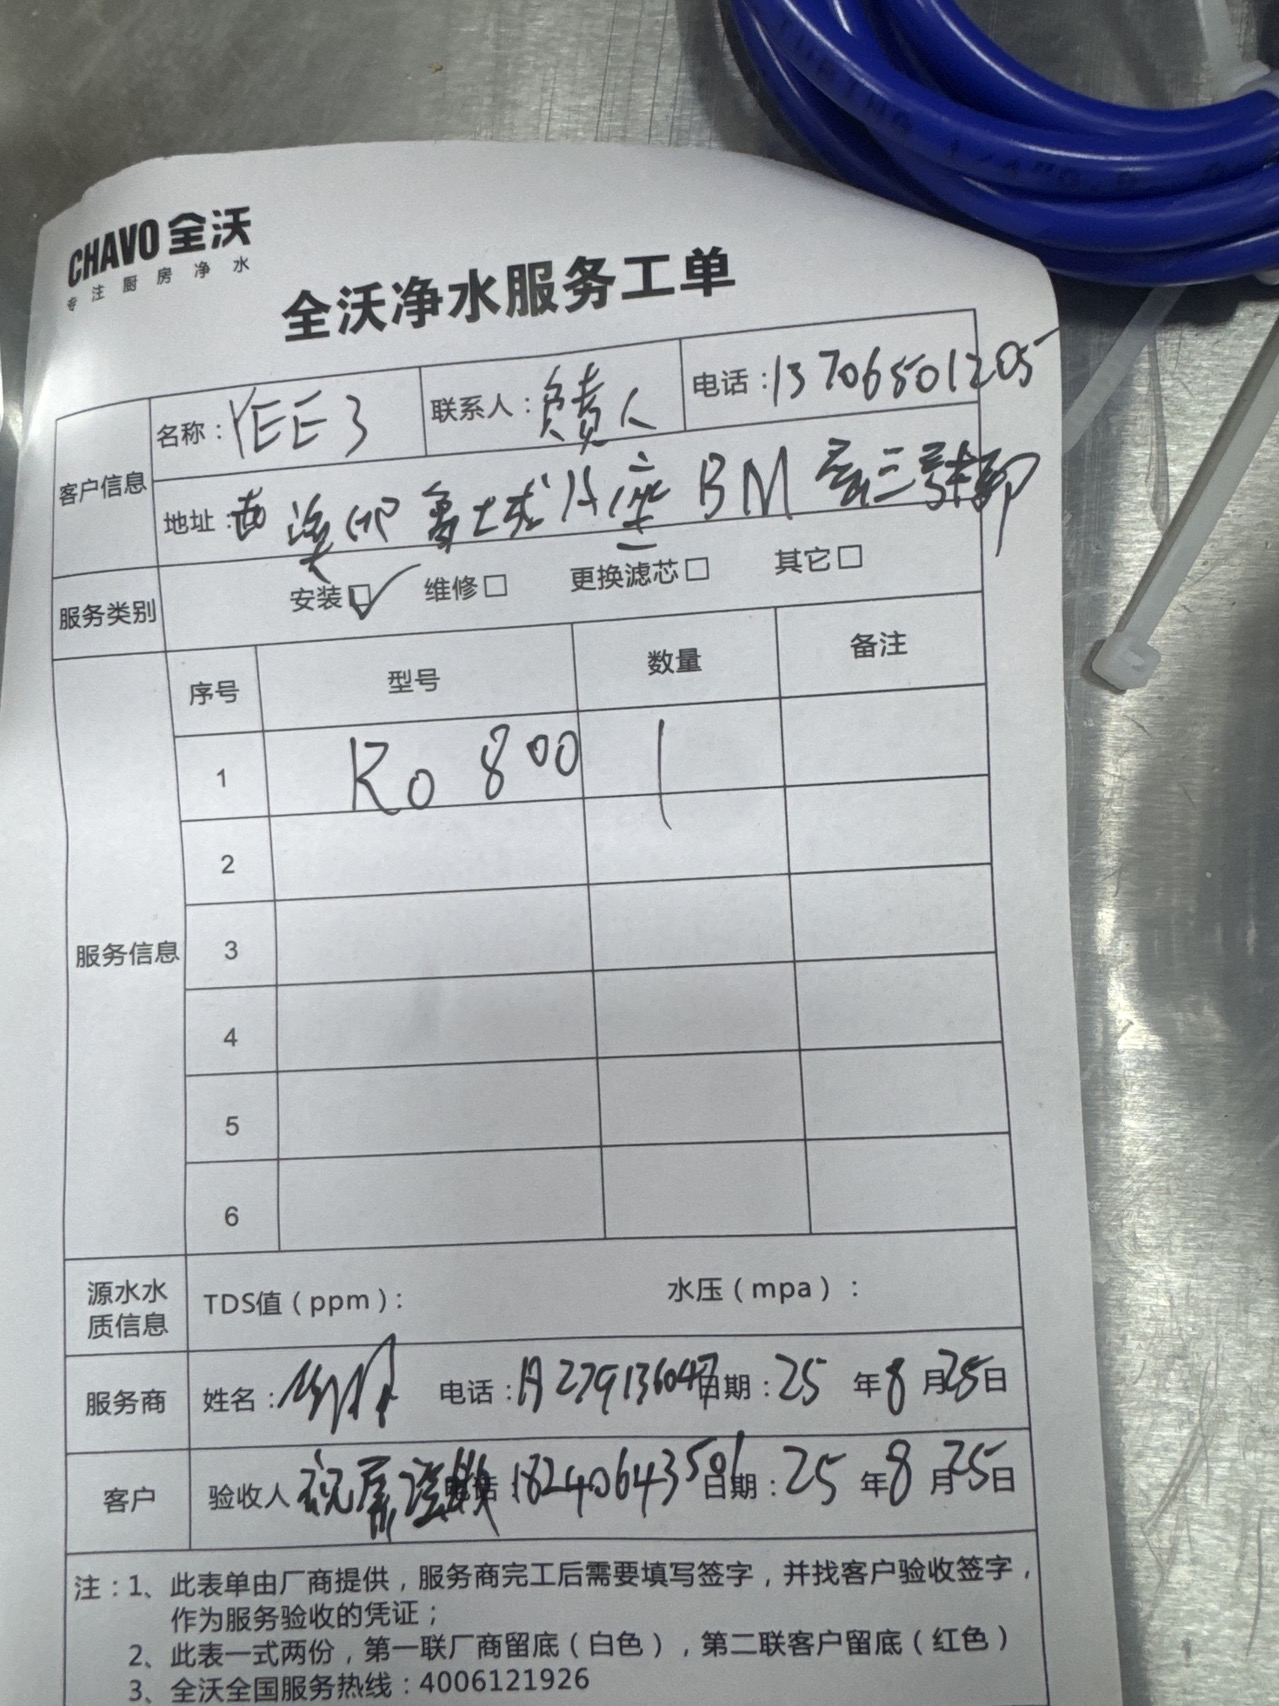 CHAVO 全沃
专注厨房净水
全沃净水服务工单
客户信息
名称：YEE3 联系人：负责人 电话：13706501205
地址：西溪 BM
服务类别 安装☑ 维修□ 更换滤芯□ 其它□
服务信息
序号 型号 数量 备注
1 Ro 800 1
2
3
4
5
6
源水水质信息 TDS值（ppm）： 水压（mpa）：
服务商 姓名： 电话： 日期：25 年8 月25日
客户 验收人 电话：18240643501 日期：25 年8 月25日
注：1、此表单由厂商提供，服务商完工后需要填写签字，并找客户验收签字，
作为服务验收的凭证；
2、此表一式两份，第一联厂商留底（白色），第二联客户留底（红色）
3、全沃全国服务热线：4006121926